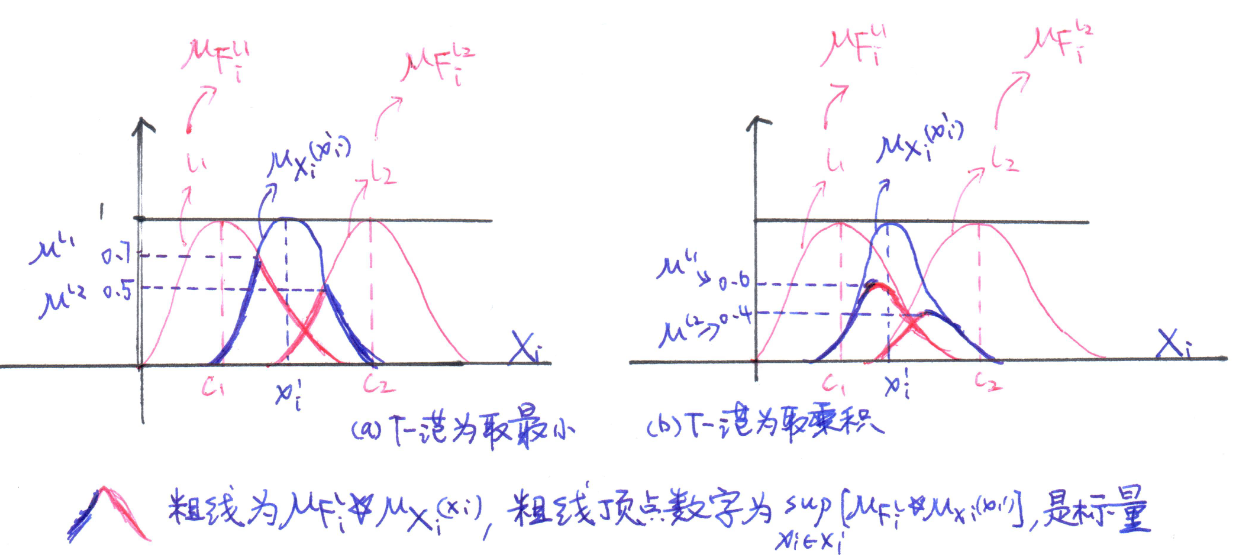 μF_i^{L1}
μF_i^{L2}
L1
μX_i(x'_i)
L2
1
μ^{L1} 0.7
μ^{L2} 0.5
C1
x'_i
C2
X_i
(a) T-范为取最小
μF_i^{L1}
μF_i^{L2}
L1
μX_i(x'_i)
L2
μ^{L1} 0.6
μ^{L2} 0.4
C1
x'_i
C2
X_i
(b) T-范为取乘积
粗线为μF_i^L ✡ μX_i(x_i), 粗线顶点数字为 sup [μF_i^L ✡ μX_i(x_i)], 是标量
x_i∈X_i